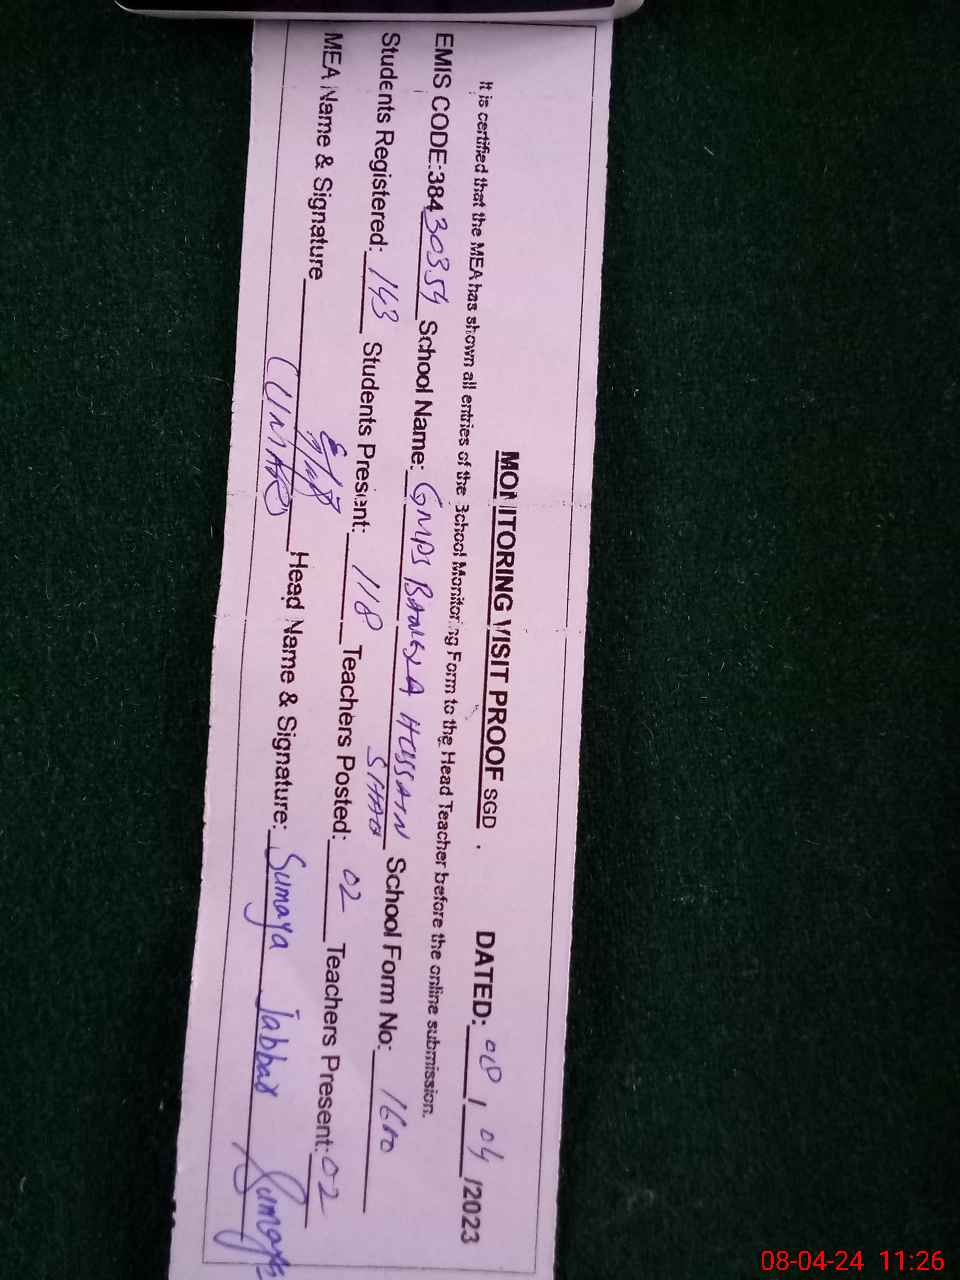 MONITORING VISIT PROOF SGD . DATED: 08 / 04 /2023
It is certified that the MEA has shown all entries of the School Monitoring Form to the Head Teacher before the online submission.
EMIS CODE:38430354 School Name: GMPS BAWEXA HUSSAIN SHAH School Form No: 1600
Students Registered: 143 Students Present: 118 Teachers Posted: 02 Teachers Present: 02
MEA Name & Signature (UMAR) Head Name & Signature: Sumaya Jabbar Sumaya
08-04-24 11:26